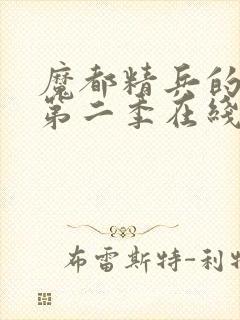 魔都精兵的
第二季在线
布雷斯特-利特